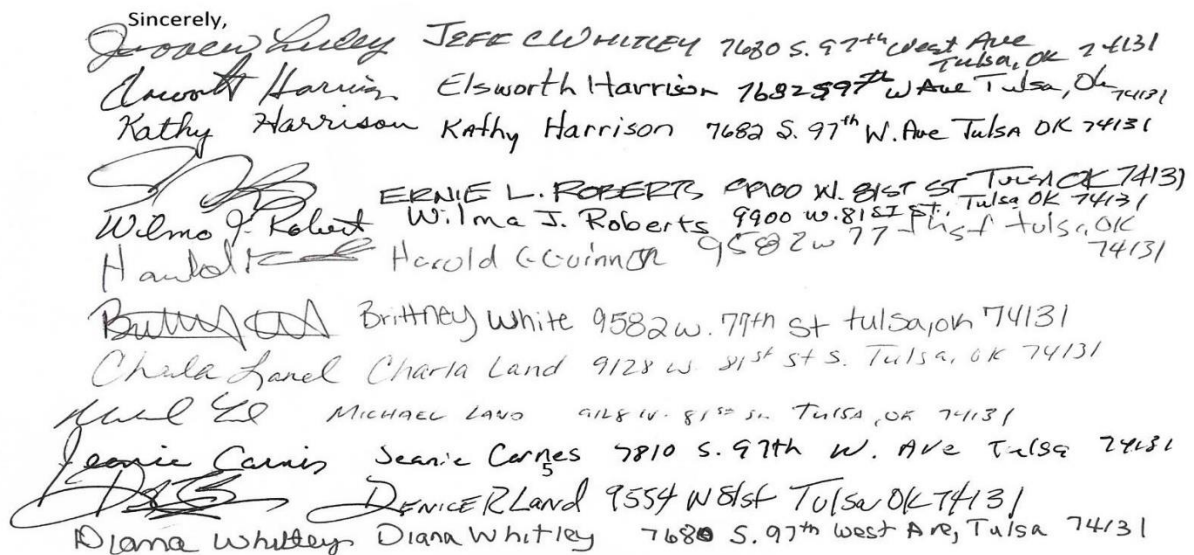 Sincerely,
JEFF C WHITLEY 7680 S. 97th West Ave
Tulsa, OK 74131
Elsworth Harrison Elsworth Harrison 7682 S 97th W Ave Tulsa, Ok 74131
Kathy Harrison Kathy Harrison 7682 S. 97th W. Ave Tulsa OK 74131
ERNIE L. ROBERTS 9900 W. 81ST ST Tulsa OK 74131
Wilma J. Robert Wilma J. Roberts 9900 W. 81ST St. Tulsa OK 74131
Harold Harold G Guinn 9582 w 77 st tulsa, OK
74131
Brittney White 9582 w. 77th st tulsa, ok 74131
Charla Land Charla Land 9128 W 81st St S. Tulsa, OK 74131
MICHAEL LAND 9128 W. 81st St. TULSA, OK 74131
Jeanie Carnes Jeanie Carnes 7810 S. 97th W. Ave Tulsa 74131
DENICE R Land 9554 W 81st Tulsa OK 74131
Diana Whitley Diana Whitley 7680 S. 97th West Ave, Tulsa 74131